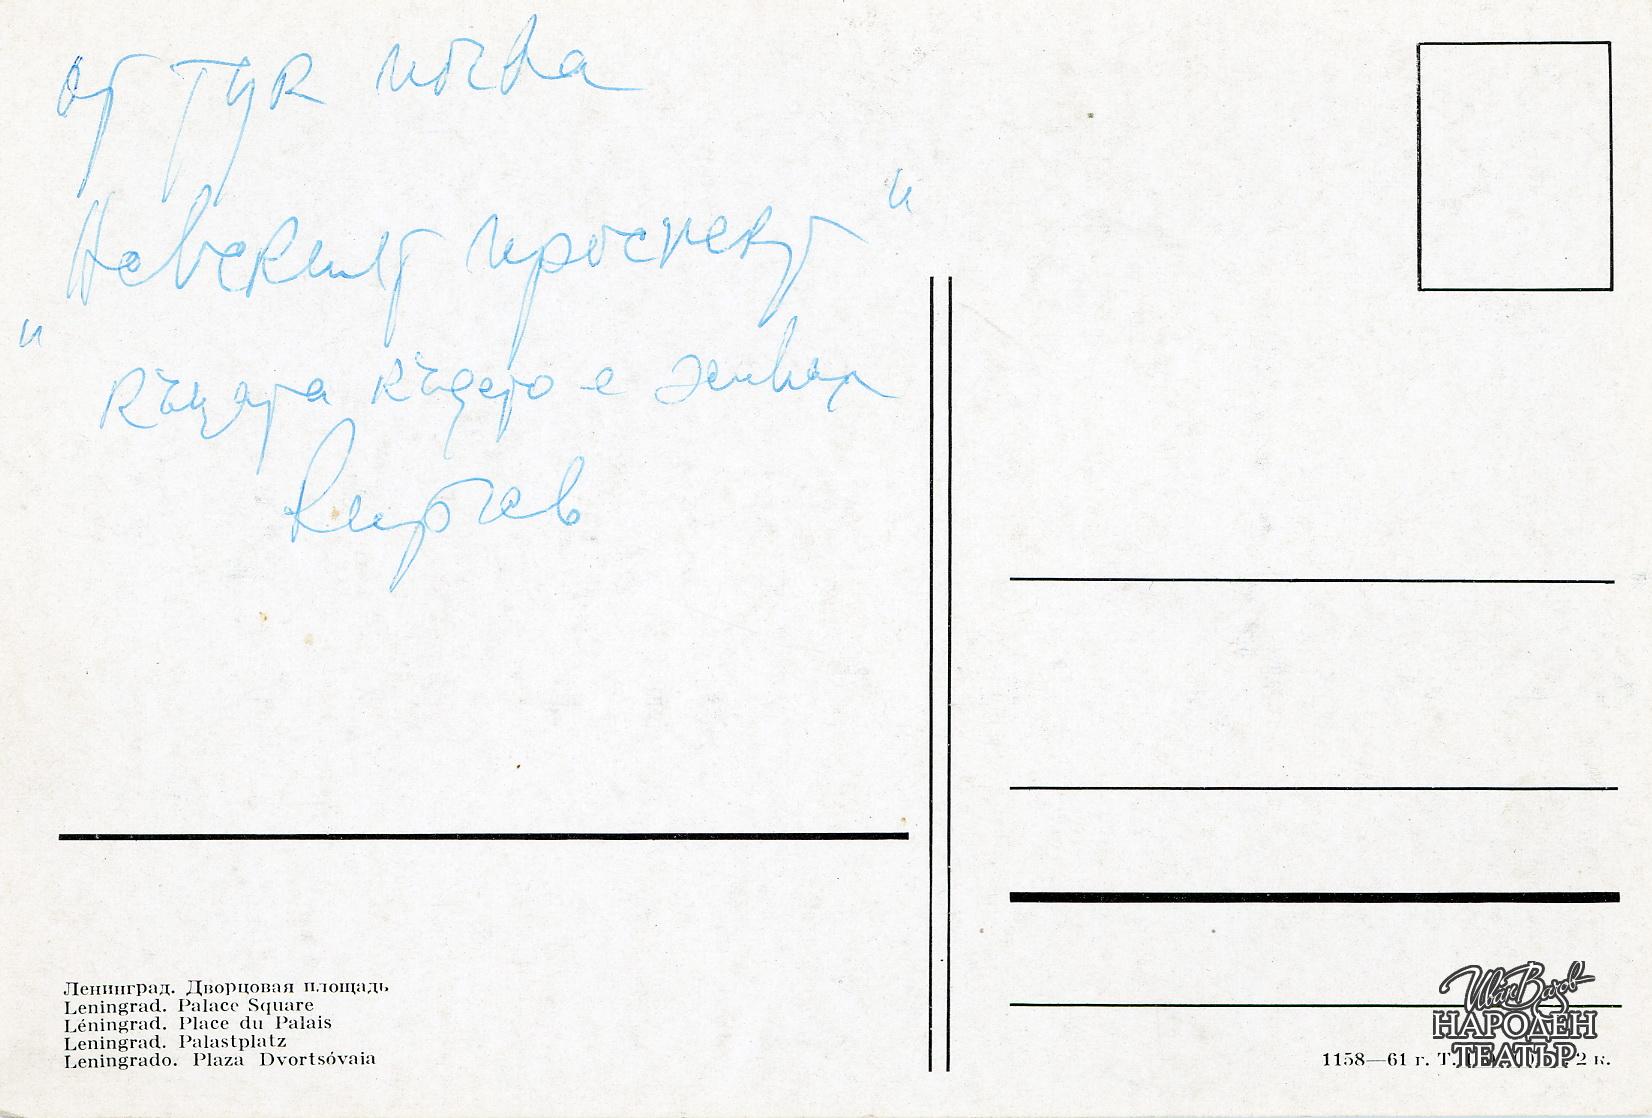 от тук почва
Невският проспект "
" къщата където е живял
Ленинград. Дворцовая площадь
Leningrad. Palace Square
Léningrad. Place du Palais
Leningrad. Palastplatz
Leningrado. Plaza Dvortsóvaia
1158—61 г. Т. 2 к.
Иван Вазов
НАРОДЕН
ТЕАТЪР